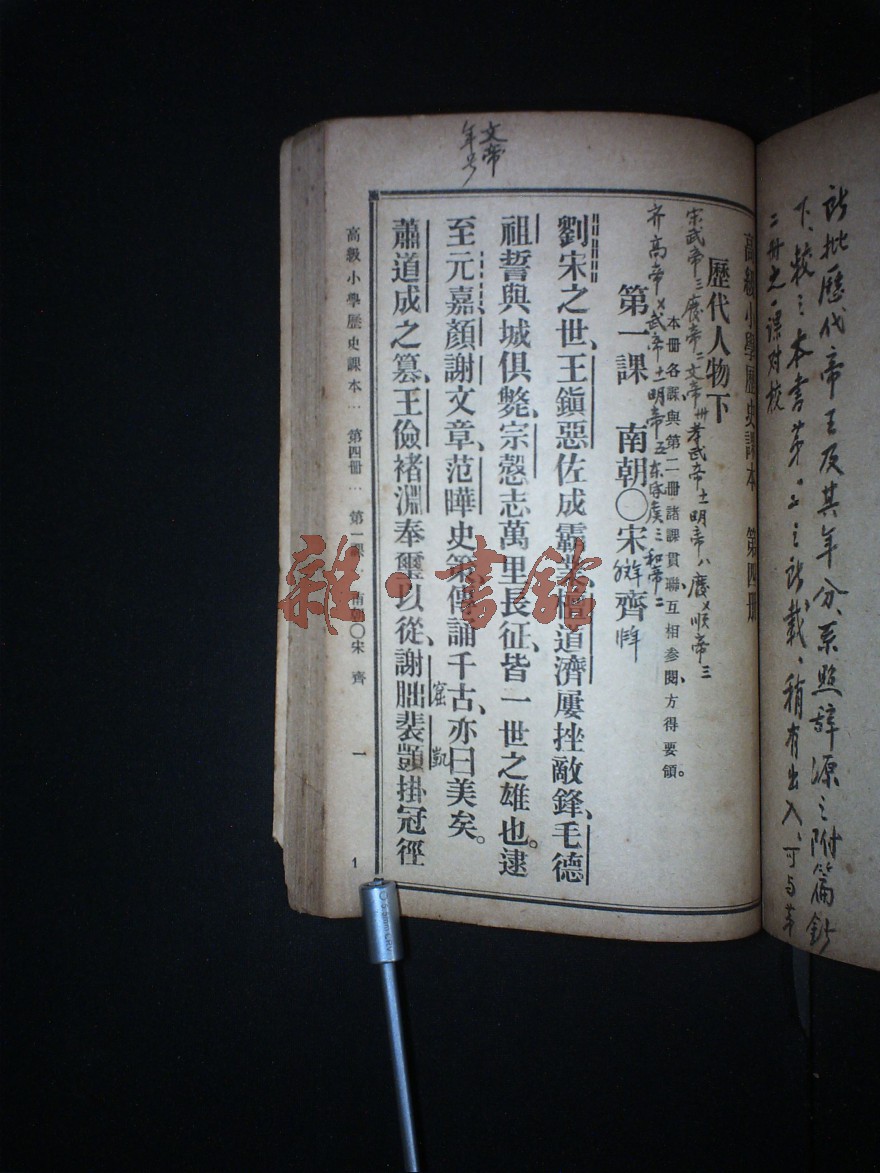 所批歷代帝王及其年分、系照辭源之附篇鈔
下、較之本書第二之所載、稍有出入、可与第
二冊之一课对校
高級小學歷史課本 第四冊
歷代人物下
宋武帝三廢帝二文帝卅孝武帝十一明帝八廢〤順帝三
本冊各課與第二冊諸課貫聯互相參閱、方得要領。
齐高帝〤武帝十一明帝五东昏廣三和帝二
第一課 南朝〇宋齊
劉宋之世、王鎭惡佐成霸業、檀道濟屢挫敵鋒、毛德
祖誓與城俱斃、宗慤志萬里長征、皆一世之雄也。逮
文帝
年号
至元嘉、顏謝文章、范曄史筆、傳誦千古、亦曰美矣。
窟 凱
蕭道成之篡、王儉褚淵奉璽以從、謝朏裴顗掛冠徑
高級小學歷史課本 第四冊 第一課 南朝〇宋 齊 一
1
雜·書館